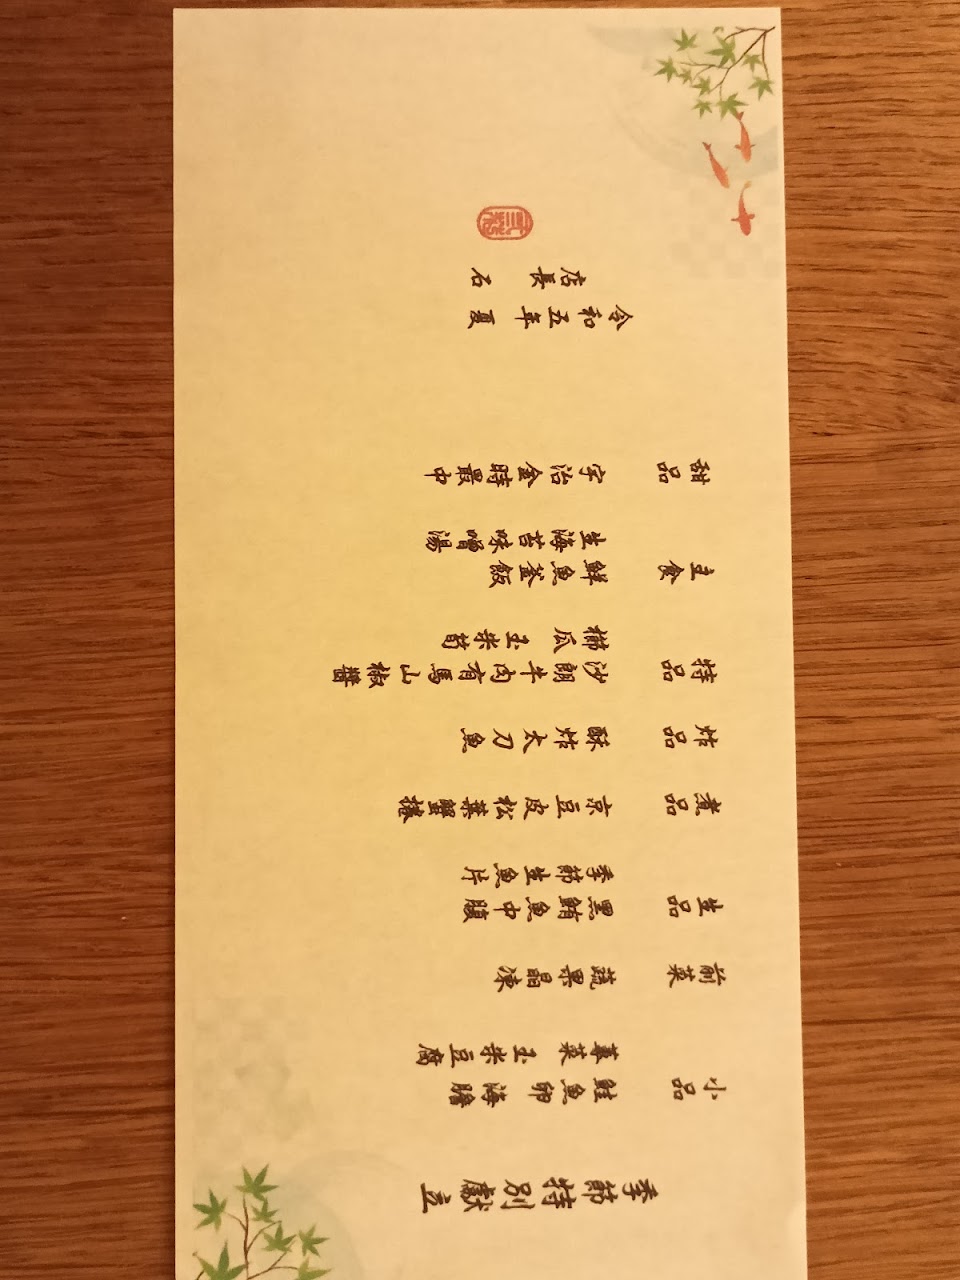 季節特別獻立
小品 鮭魚卵海膽
蓴菜玉米豆腐
前菜 蔬果晶凍
生品 黑鮪魚中腹
季節生魚片
煮品 京豆皮松葉蟹捲
炸品 酥炸太刀魚
特品 沙朗牛肉有馬山椒醬
櫛瓜 玉米筍
主食 鮮魚釜飯
生海苔味噌湯
甜品 宇治金時最中
令和五年 夏
店長 石